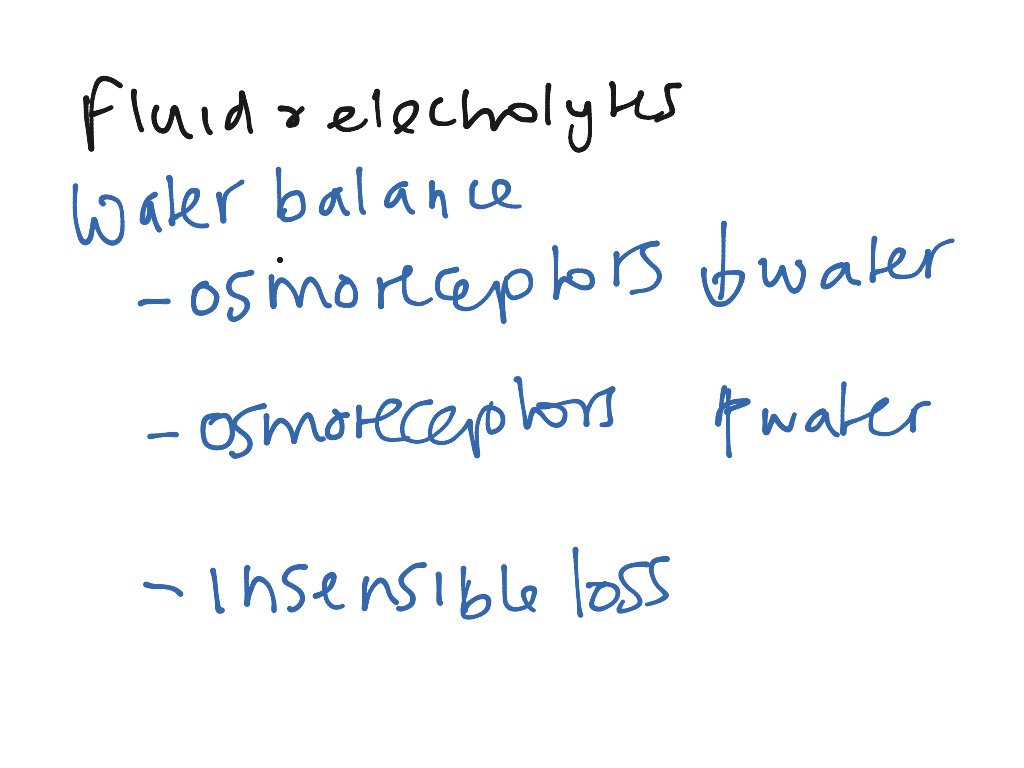 Fluid & electrolytes
Water balance
- osmoreceptors ↓ water
- osmoreceptors ↑ water
- Insensible loss